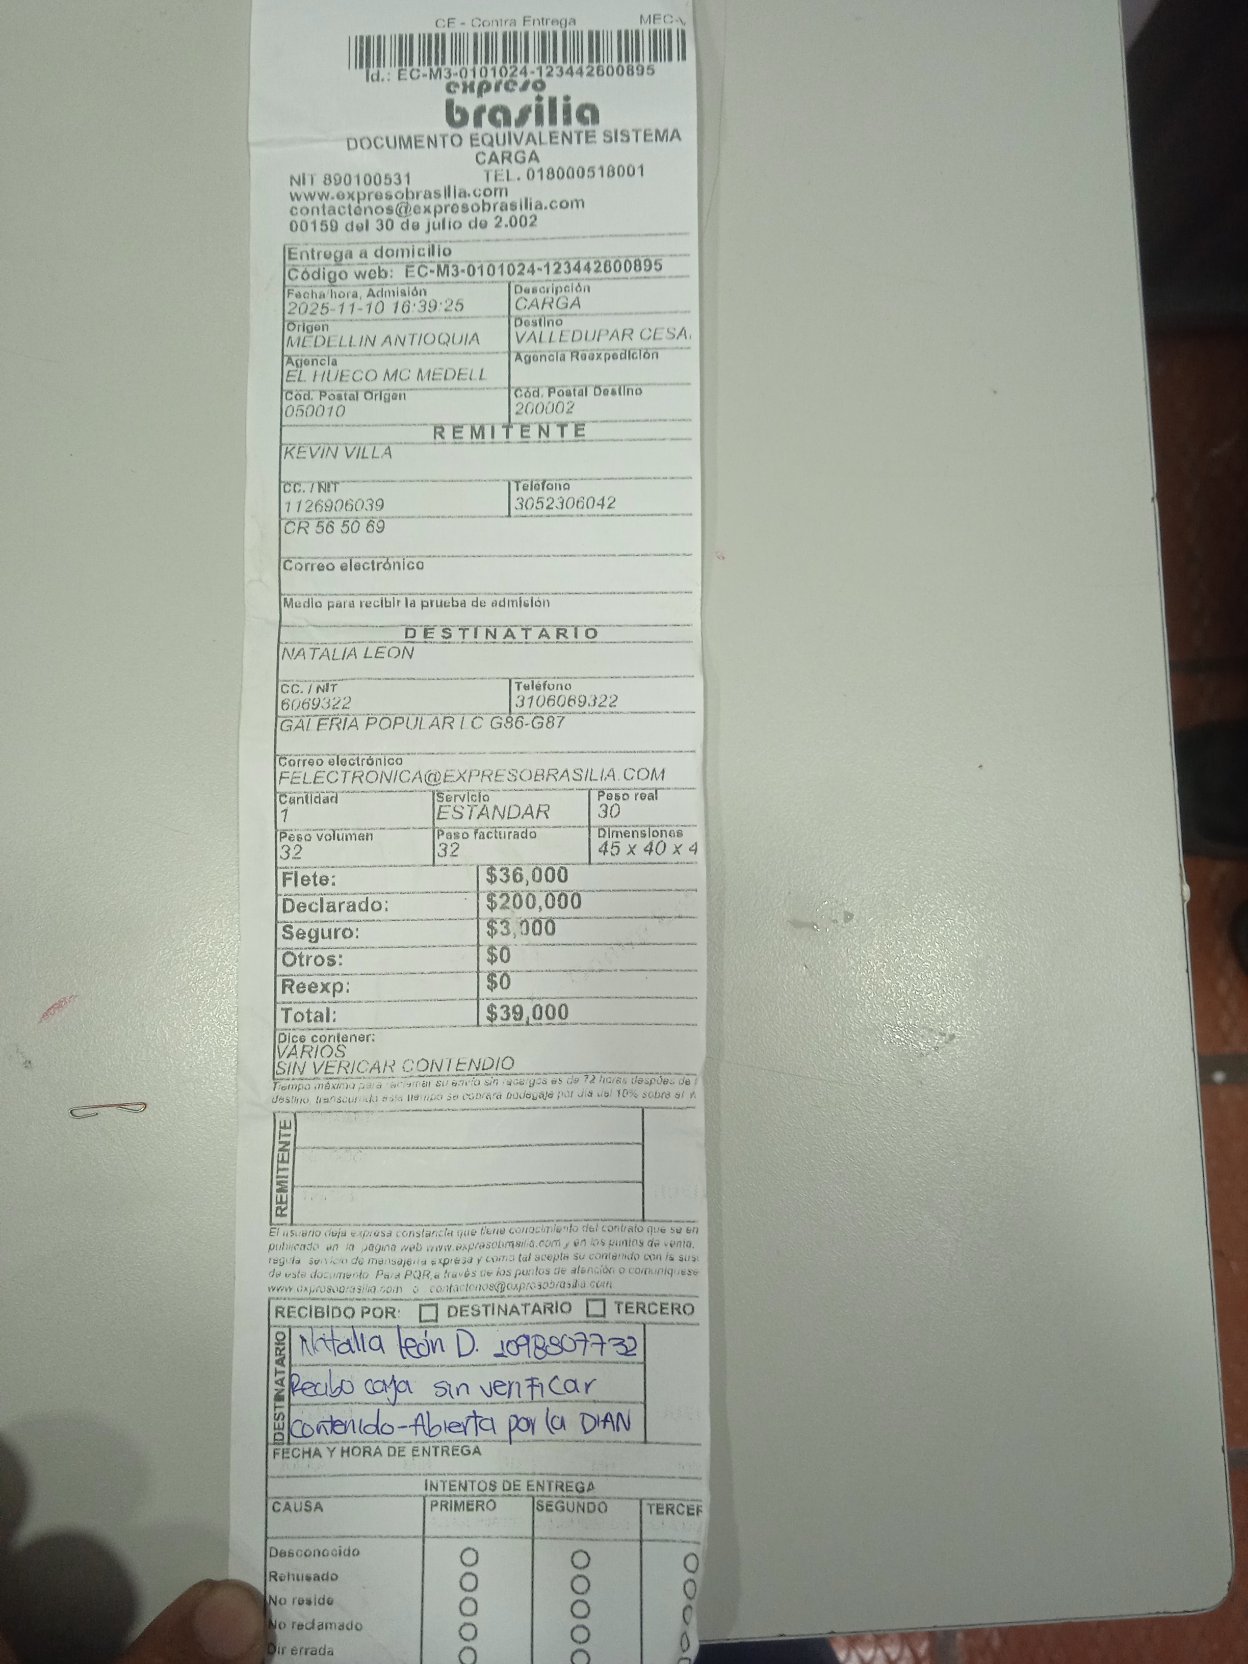 CE - Contra Entrega MEC-
Id.: EC-M3-0101024-123442600895
expreso
brasilia
DOCUMENTO EQUIVALENTE SISTEMA
CARGA
NIT 890100531 TEL. 018000518001
www.expresobrasilia.com
contactenos@expresobrasilia.com
00159 del 30 de julio de 2.002
Entrega a domicilio
Código web: EC-M3-0101024-123442600895
Fecha/hora, Admisión Descripción
2025-11-10 16:39:25 CARGA
Origen Destino
MEDELLIN ANTIOQUIA VALLEDUPAR CESA.
Agencia Agencia Reexpedición
EL HUECO MC MEDELL
Cód. Postal Origen Cód. Postal Destino
050010 200002
REMITENTE
KEVIN VILLA
CC. / NIT Teléfono
1126906039 3052306042
CR 56 50 69
Correo electrónico
Medio para recibir la prueba de admisión
DESTINATARIO
NATALIA LEON
CC. / NIT Teléfono
6069322 3106069322
GALERIA POPULAR LC G86-G87
Correo electrónico
FELECTRONICA@EXPRESOBRASILIA.COM
Cantidad Servicio Peso real
1 ESTANDAR 30
Peso volumen Peso facturado Dimensiones
32 32 45 x 40 x 4
Flete: $36,000
Declarado: $200,000
Seguro: $3,000
Otros: $0
Reexp: $0
Total: $39,000
Dice contener:
VARIOS
SIN VERICAR CONTENDIO
Tiempo máximo para reclamar su envío sin recargos es de 72 horas después de
destino, transcurrido este tiempo se cobrará bodegaje por día del 10% sobre el
REMITENTE
El usuario deja expresa constancia que tiene conocimiento del contrato que se en
publicado en la página web www.expresobrasilia.com y en los puntos de venta,
regula servicio de mensajería expresa y como tal acepta su contenido con la sus
de este documento. Para PQR a través de los puntos de atención o comuníquese
www.expresobrasilia.com o contactenos@expresobrasilia.com
RECIBIDO POR: DESTINATARIO TERCERO
DESTINATARIO
Natalia León D. 1098807732
Recibo caja sin verificar
contenido-Abierta por la DIAN
FECHA Y HORA DE ENTREGA
INTENTOS DE ENTREGA
CAUSA PRIMERO SEGUNDO TERCER
Desconocido
Rehusado
No reside
No reclamado
Dir errada